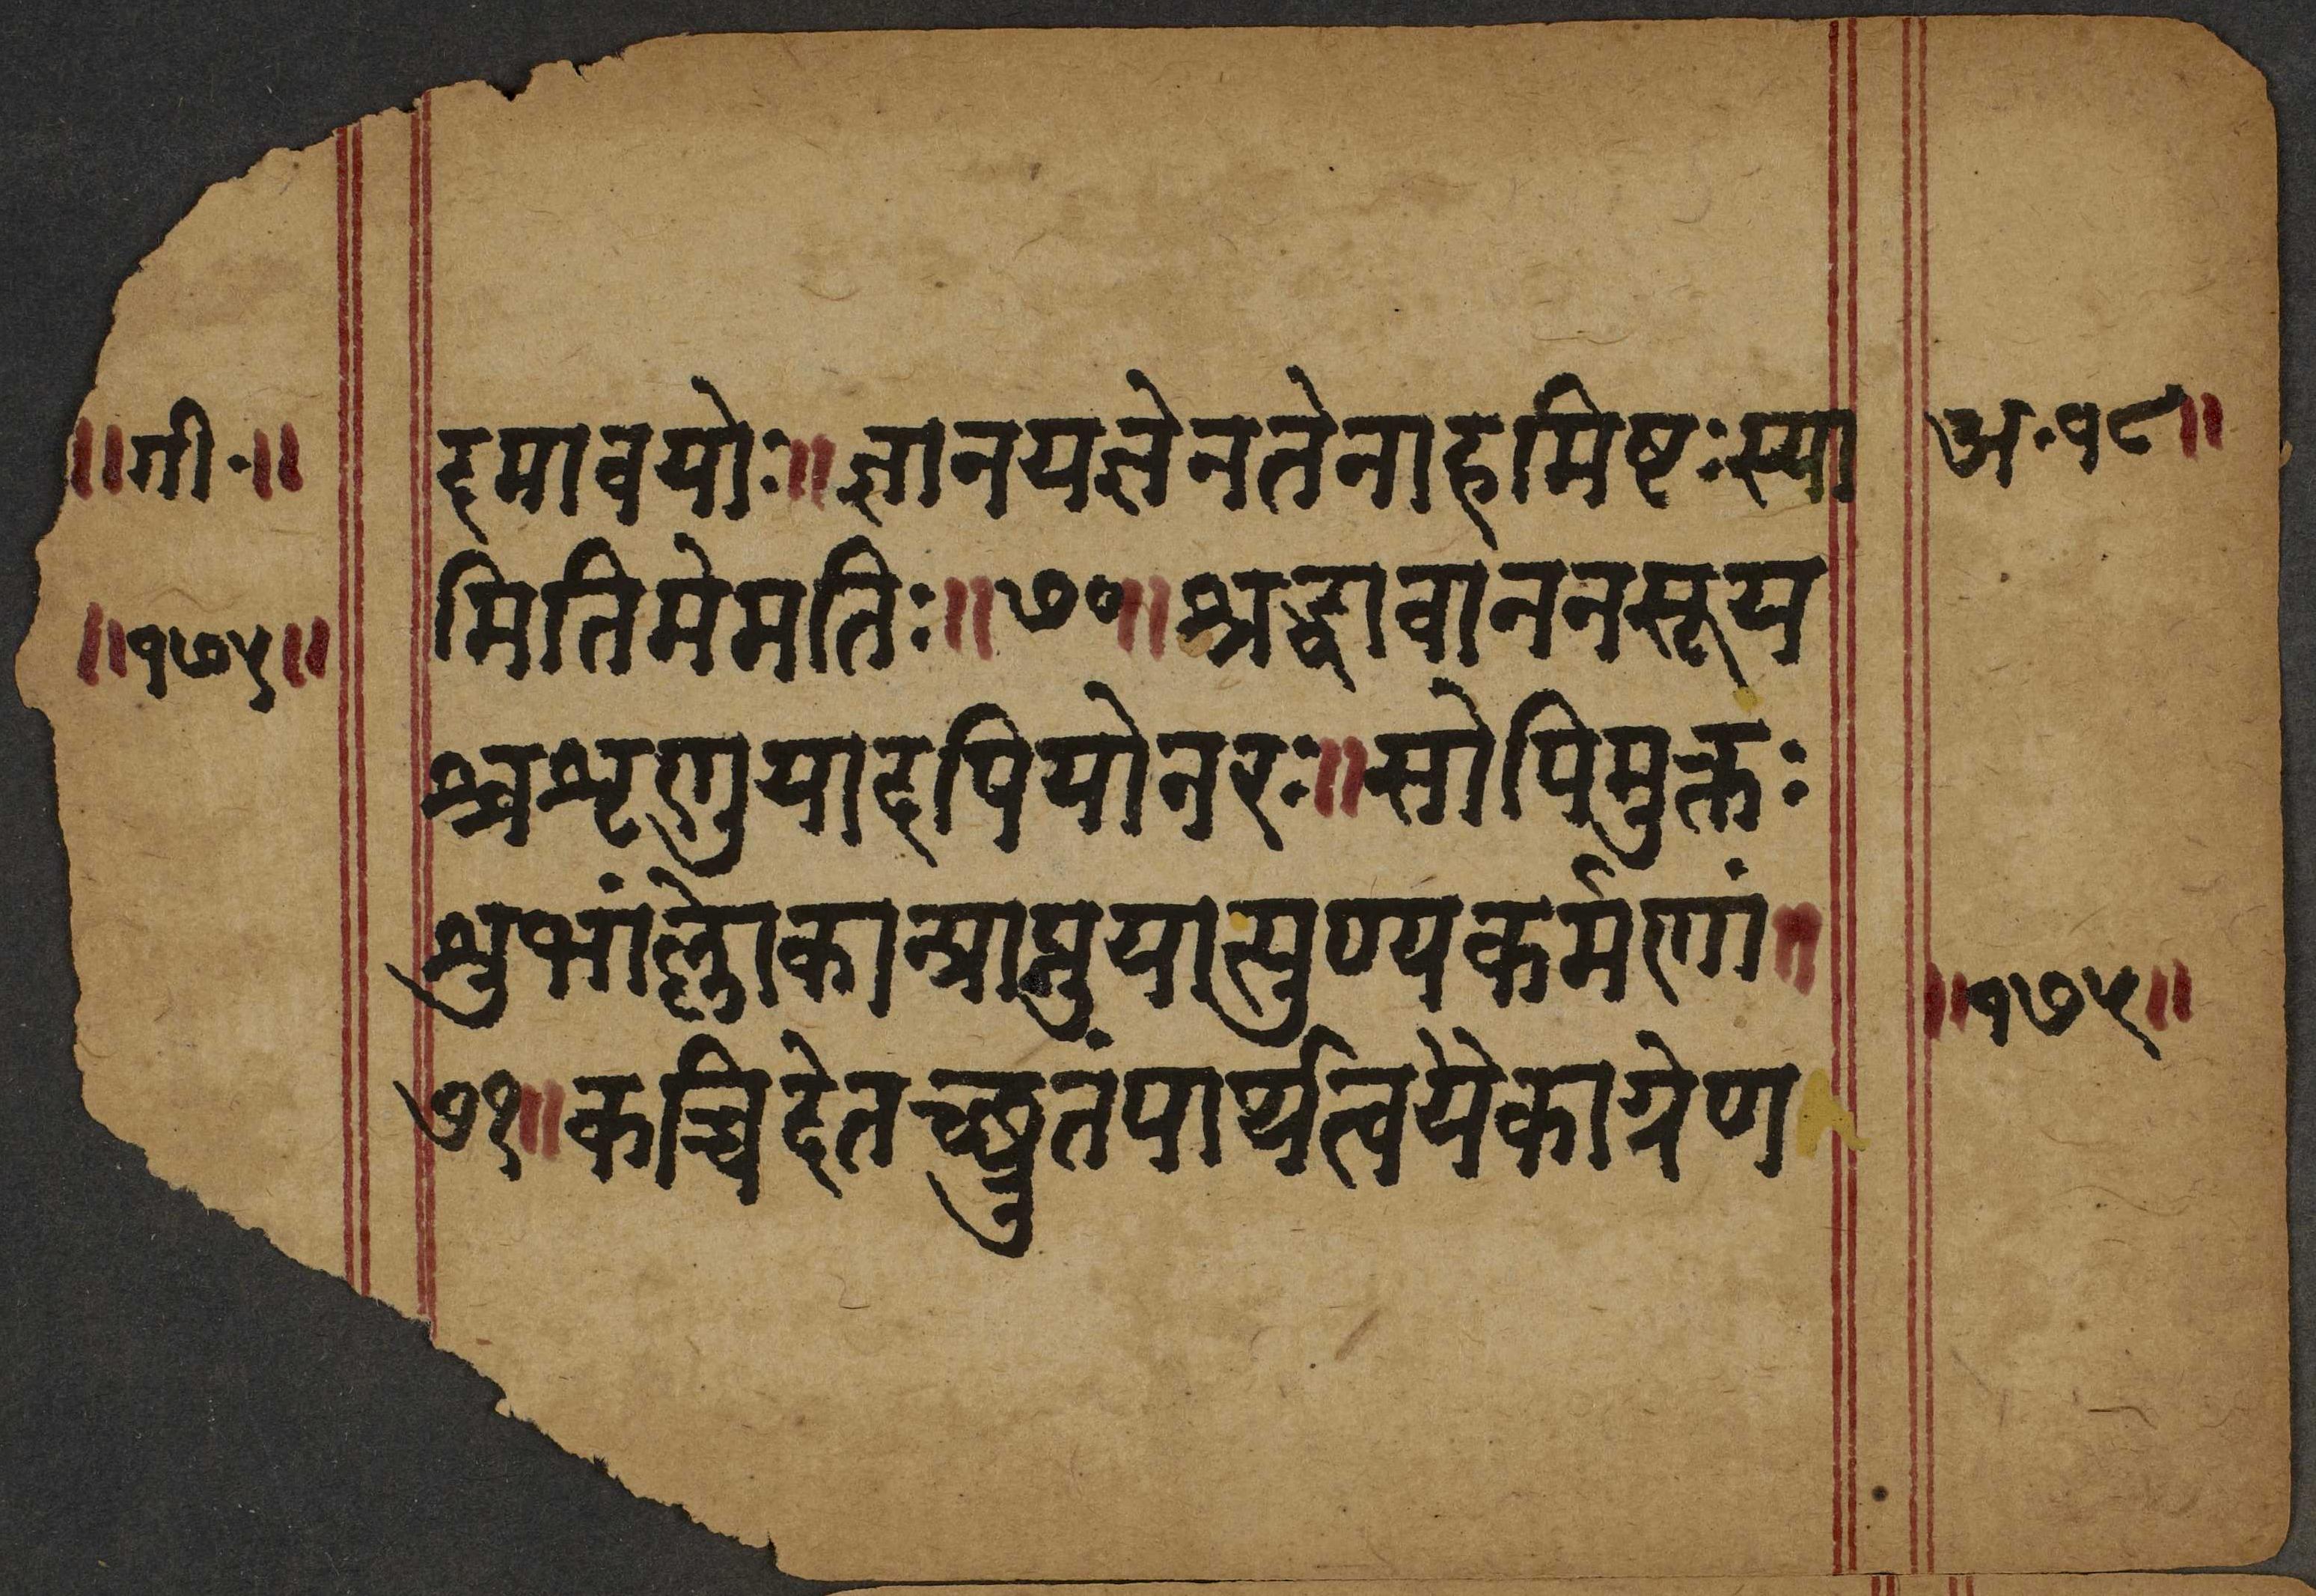 ॥गी॰॥
॥१७५॥
दमावयोः॥ज्ञानयज्ञेनतेनाहमिष्टःस्या
मितिमेमतिः॥७०॥श्रद्धावाननसूय
श्चशृणुयादपियोनरः॥सोपिमुक्तः
शुभांल्लोकान्प्राप्नुयात्पुण्यकर्मणां॥
७१॥कच्चिदेतच्छ्रुतंपार्थत्वयैकाग्रेण
अ॰१८॥
॥१७५॥